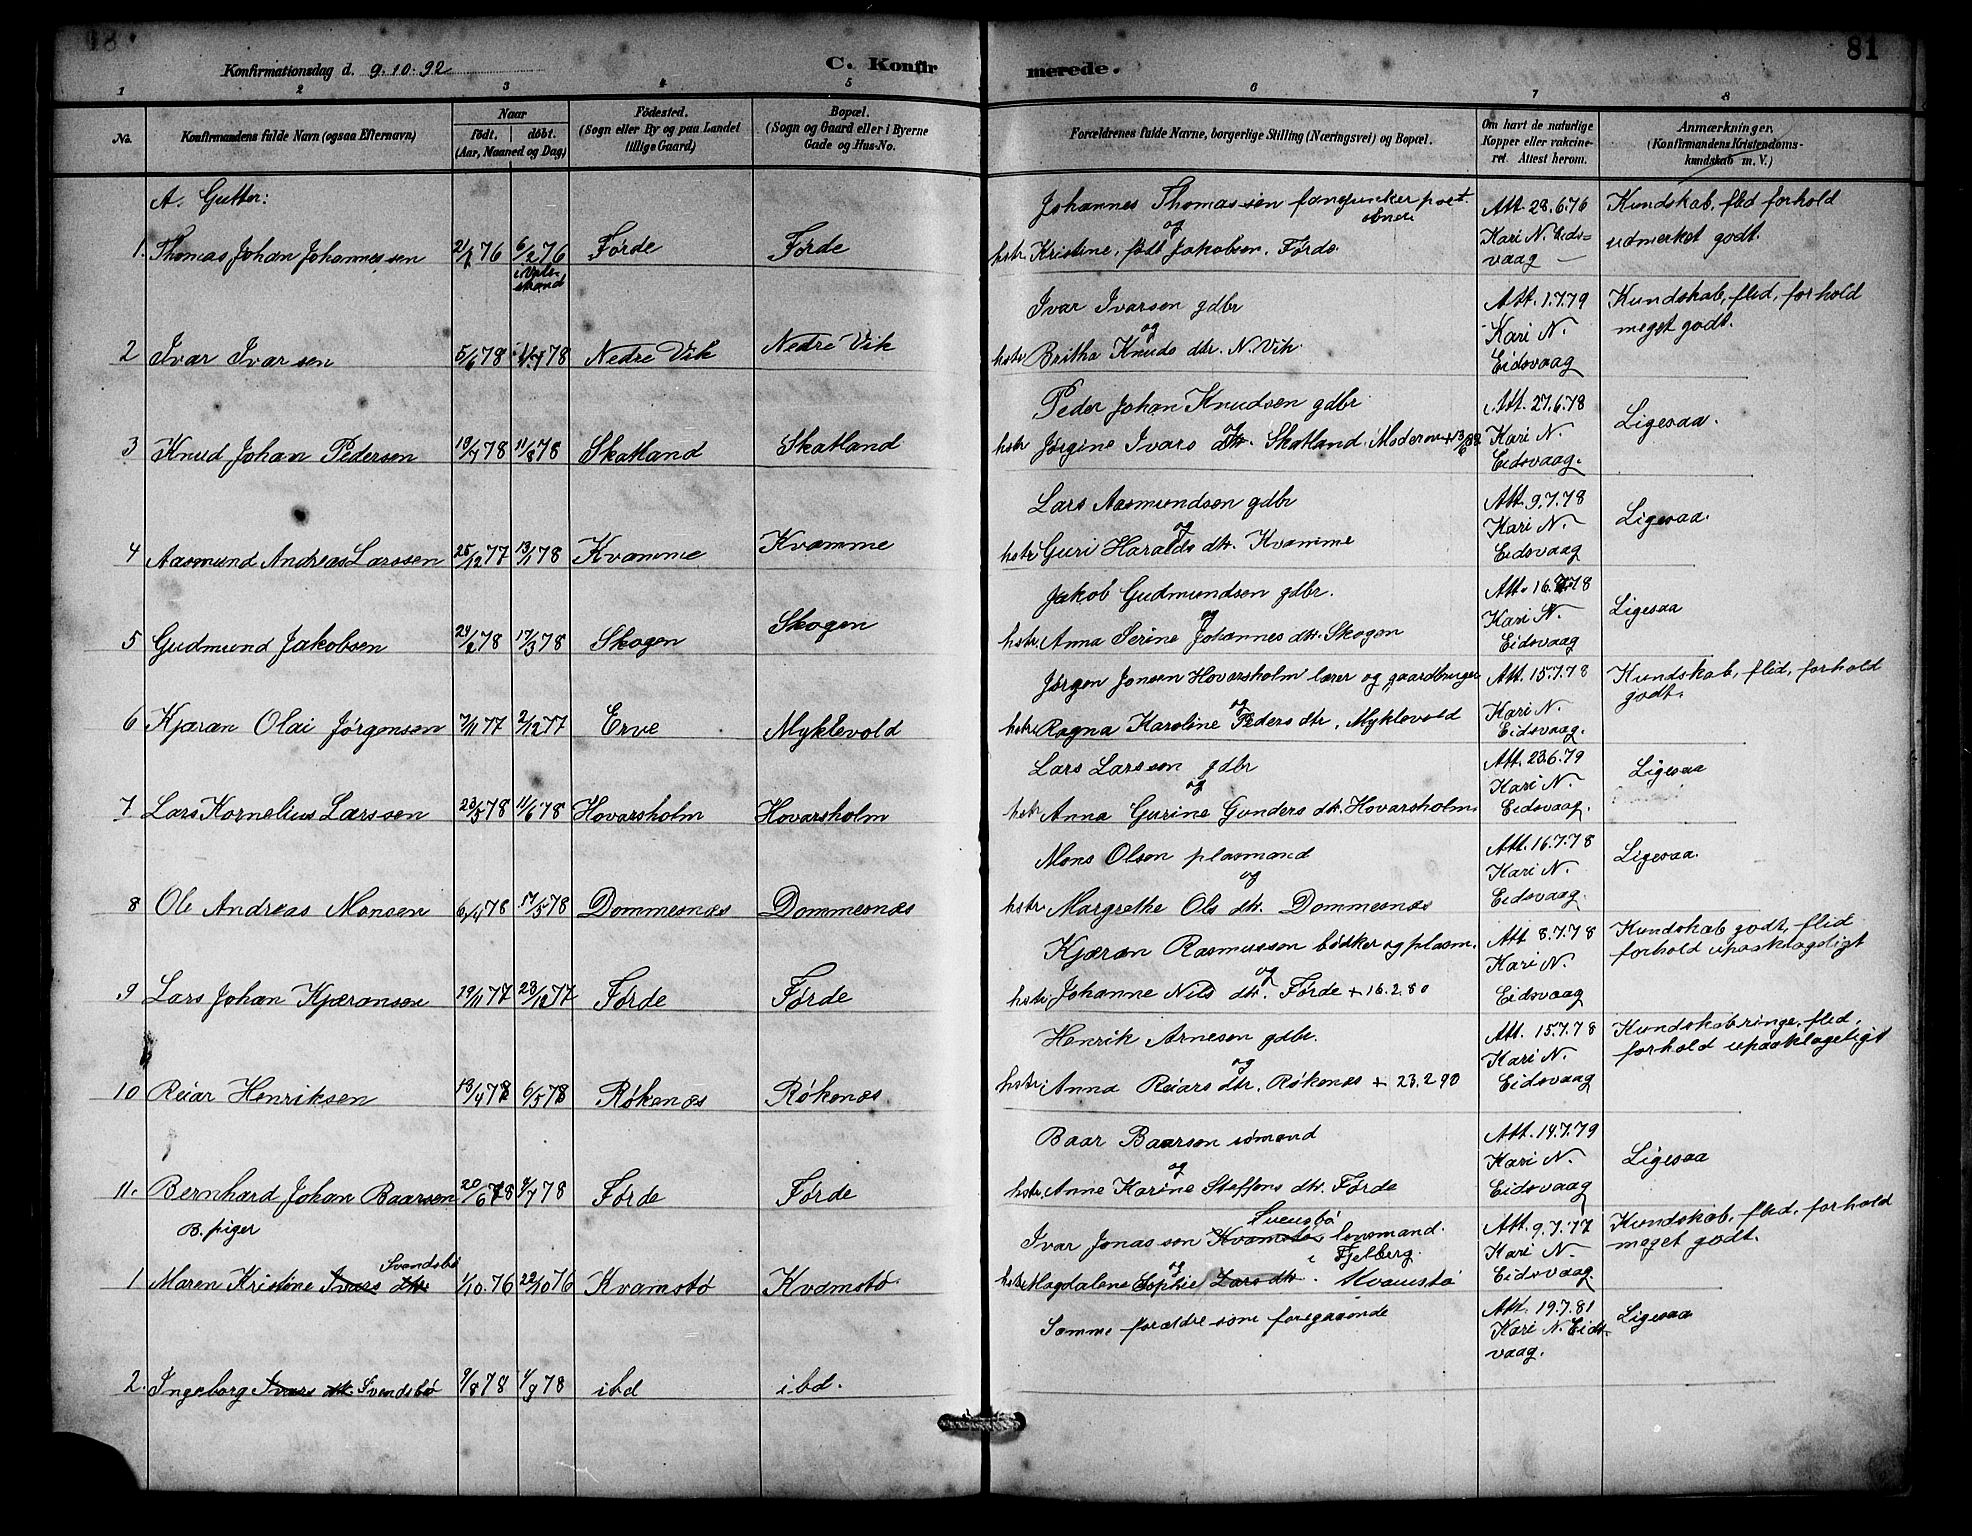 81
Konfirmationsdag d. 9.10.92
C. Konfirmerede.
1 2 3 4 5 6 7 8
No.
Konfirmandens fulde Navn (ogsaa Efternavn)
Naar
födt. döbt.
(Aar, Maaned og Dag)
Födested.
(Sogn eller By og paa Landet
tillige Gaard)
Bopæl.
(Sogn og Gaard eller i Byerne
Gade og Hus-No.
Forældrenes fulde Navne, borgerlige Stilling (Næringsvei) og Bopæl.
Om havt de naturlige
Kopper eller vakcineret. Attest herom.
Anmærkninger.
(Konfirmandens Kristendomskundskab m. V.)
A. Gutter:
1. Thomas Johan Johannessen 6/2 76 Førde Førde
Johannes Thomassen
og
hstr. Kristine, født Jakobsen. Førde.
Att. 28.6.76
Kari N. Eidsvaag
Kundskab, flid forhold
udmerket godt.
2 Ivar Ivarsen 78 Nedre Vik Nedre Vik
Ivar Ivarsen gdbr
og
hstr Britha Knuds dtr. N. Vik.
Att. 1.7.79
Kari N.
Eidsvaag
Kundskab, flid, forhold
meget godt.
3 Knud Johan Pedersen 19/7 78 11/8 78 Skatland Skatland
Peder Johan Knudsen gdbr
og
hstr Jørgine Ivars dtr. Skatland. Moderen +
Att. 27.6.78
Kari N.
Eidsvaag.
Ligesaa.
4 Aasmund Andreas Larssen 25/12 77 13/1 78 Kvamme Kvamme
Lars Aasmundsen gdbr
og
hstr Guri Haralds dtr. Kvamme
Att. 9.7.78
Kari N.
Eidsvaag
Ligesaa.
5 Gudmund Jakobsen 24/2 78 17/3 78 Skogen Skogen
Jakob Gudmundsen gdbr.
og
hstr. Anna Serine Johannes dtr. Skogen
Att. 16.7.78
Kari N.
Eidsvaag
Ligesaa
6 Kjæran Olai Jørgensen 7/11 77 2/12 77 Erve Myklevold
Jørgen Jonsen Hovarsholm lærer og gaardbruger
og
hstr. Ragna Karoline Peders dtr. Myklevold
Att. 15.7.78
Kari N.
Eidsvaag.
Kundskab, flid, forhold
godt.
7 Lars Kornelius Larssen 23/5 78 11/6 78 Hovarsholm Hovarsholm
Lars Larssen gdbr
og
hstr Anna Gurine Gunders dtr. Hovarsholm.
Att. 23.6.79
Kari N.
Eidsvaag.
Ligesaa
8 Ole Andreas Monsen 6/4 78 17/5 78 Dommesnæs Dommesnæs
Mons Olsen plasmand
og
hstr Margrethe Ols dtr. Dommesnæs
Att. 16.7.78
Kari N.
Eidsvaag.
Ligesaa.
9 Lars Johan Kjæransen 19/11 77 23/12 77 Førde Førde
Kjæran Rasmussen bødker og plasm.
og
hstr. Johanne Nils dtr. Førde + 16.2.80
Att. 8.7.78
Kari N.
Eidsvaag
Kundskab godt, flid
forhold upaaklageligt
10 Reiar Henriksen 13/4 78 6/5 78 Røkenæs Røkenæs
Henrik Arnesen gdbr.
og
hstr. Anna Reiars dtr. Røkenæs + 23.2.90
Att. 15.7.78
Kari N.
Eidsvaag
Kundskab ringe, flid,
forhold upaaklageligt
11. Bernhard Johan Baarsen 20/6 78 4/7 78 Førde Førde
Baar Baarsen sømand
og
hstr. Anne Karine Steffens dtr. Førde
Att. 14.7.79
Kari N.
Eidsvaag
Ligesaa
B. piger
Svendsbø
1 Maren Kristine Ivars dtr. 1/10.76 22/10 76 Kvamstø Kvamstø
Svensbø
Ivar Jonassen Kvamstø lensmand
i Fjelberg.
og
hstr Magdalene Sophie Lars dtr. Kvamstø
Att. 9.7.77
Kari N.
Eidsvaag.
Kundskab, flid, forhold
meget godt.
2. Ingeborg Ivars dtr. Svendsbø 9/8 78 1/9 78 ibd ibd.
Samme forældre som foregaaende
Att. 19.7.81
Kari N. Eidsvaag.
Ligesaa